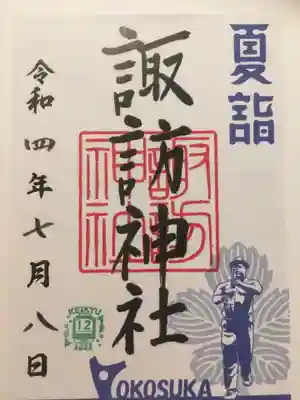 夏詣
諏訪神社
諏訪
神社
令和四年七月八日
12
YOKOSUKA